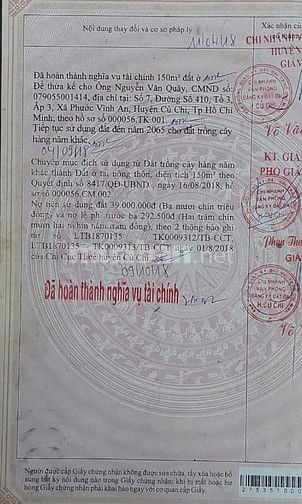 Nội dung thay đổi và cơ sở pháp lý
Xác nhận của
CHI NHÁNH
HUYỆN
GIÁM
11/04/18
Đã hoàn thành nghĩa vụ tài chính 150m² đất ở
Để thừa kế cho Ông Nguyễn Văn Quây, CMND số:
079055001414, địa chỉ tại: Số 7, Đường Số 410, Tổ 3,
Ấp 3, Xã Phước Vĩnh An, Huyện Củ Chi, Tp Hồ Chí
Minh; theo hồ sơ số 000056.TK.001.
Tiếp tục sử dụng đất đến năm 2065 cho đất trồng cây
hàng năm khác.
04/09/18
Chuyển mục đích sử dụng từ Đất trồng cây hàng năm
khác thành Đất ở tại nông thôn, diện tích 150m² theo
Quyết định số 8417/QĐ-UBND , ngày 16/08/2018, hồ
sơ số 000056.CM.002
Nợ tiền sử dụng đất 39.000.000đ (Ba mươi chín triệu
đồng) và nợ lệ phí trước bạ 292.500đ (Hai trăm chín
mươi hai nghìn năm trăm đồng), theo 2 thông báo ghi
LTB1870135 TK0009312/TB-CCT,
LTB1870135 -TK0009313/TB-CCT, ngày 01/2018
của Chi Cục Thuế huyện Củ Chi
09/10/18
Đã hoàn thành nghĩa vụ tài chính
Võ Văn
KT. GIÁM
PHÓ GIÁM
CHI NHÁNH
VĂN PHÒNG
ĐĂNG KÝ ĐẤT ĐAI
H.CỦ CHI
Người được cấp Giấy chứng nhận không được sửa chữa, tẩy xóa hoặc bổ
sung bất kỳ nội dung nào trong Giấy chứng nhận; khi bị mất hoặc hư
hỏng Giấy chứng nhận phải khai báo ngay với cơ quan cấp Giấy.